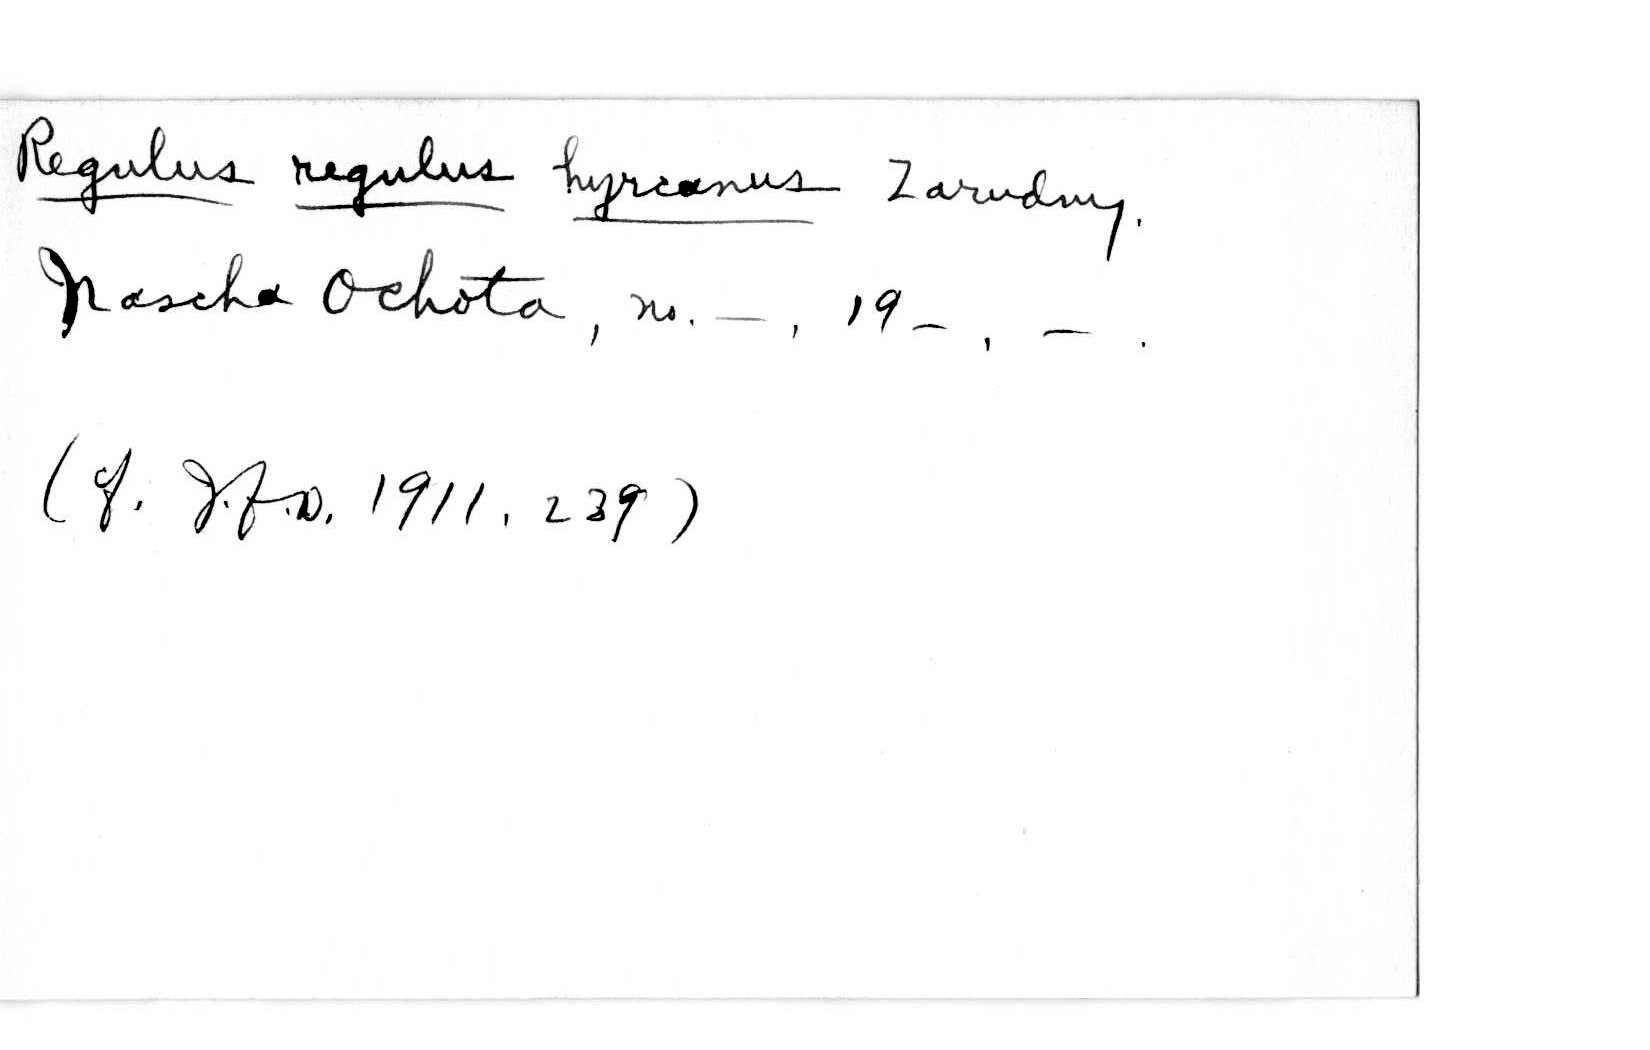 Regulus regulus hyrcanus Zarudny.
Nascha Ochota, no. —, 19–, –.
(cf. J.f.O. 1911, 239)